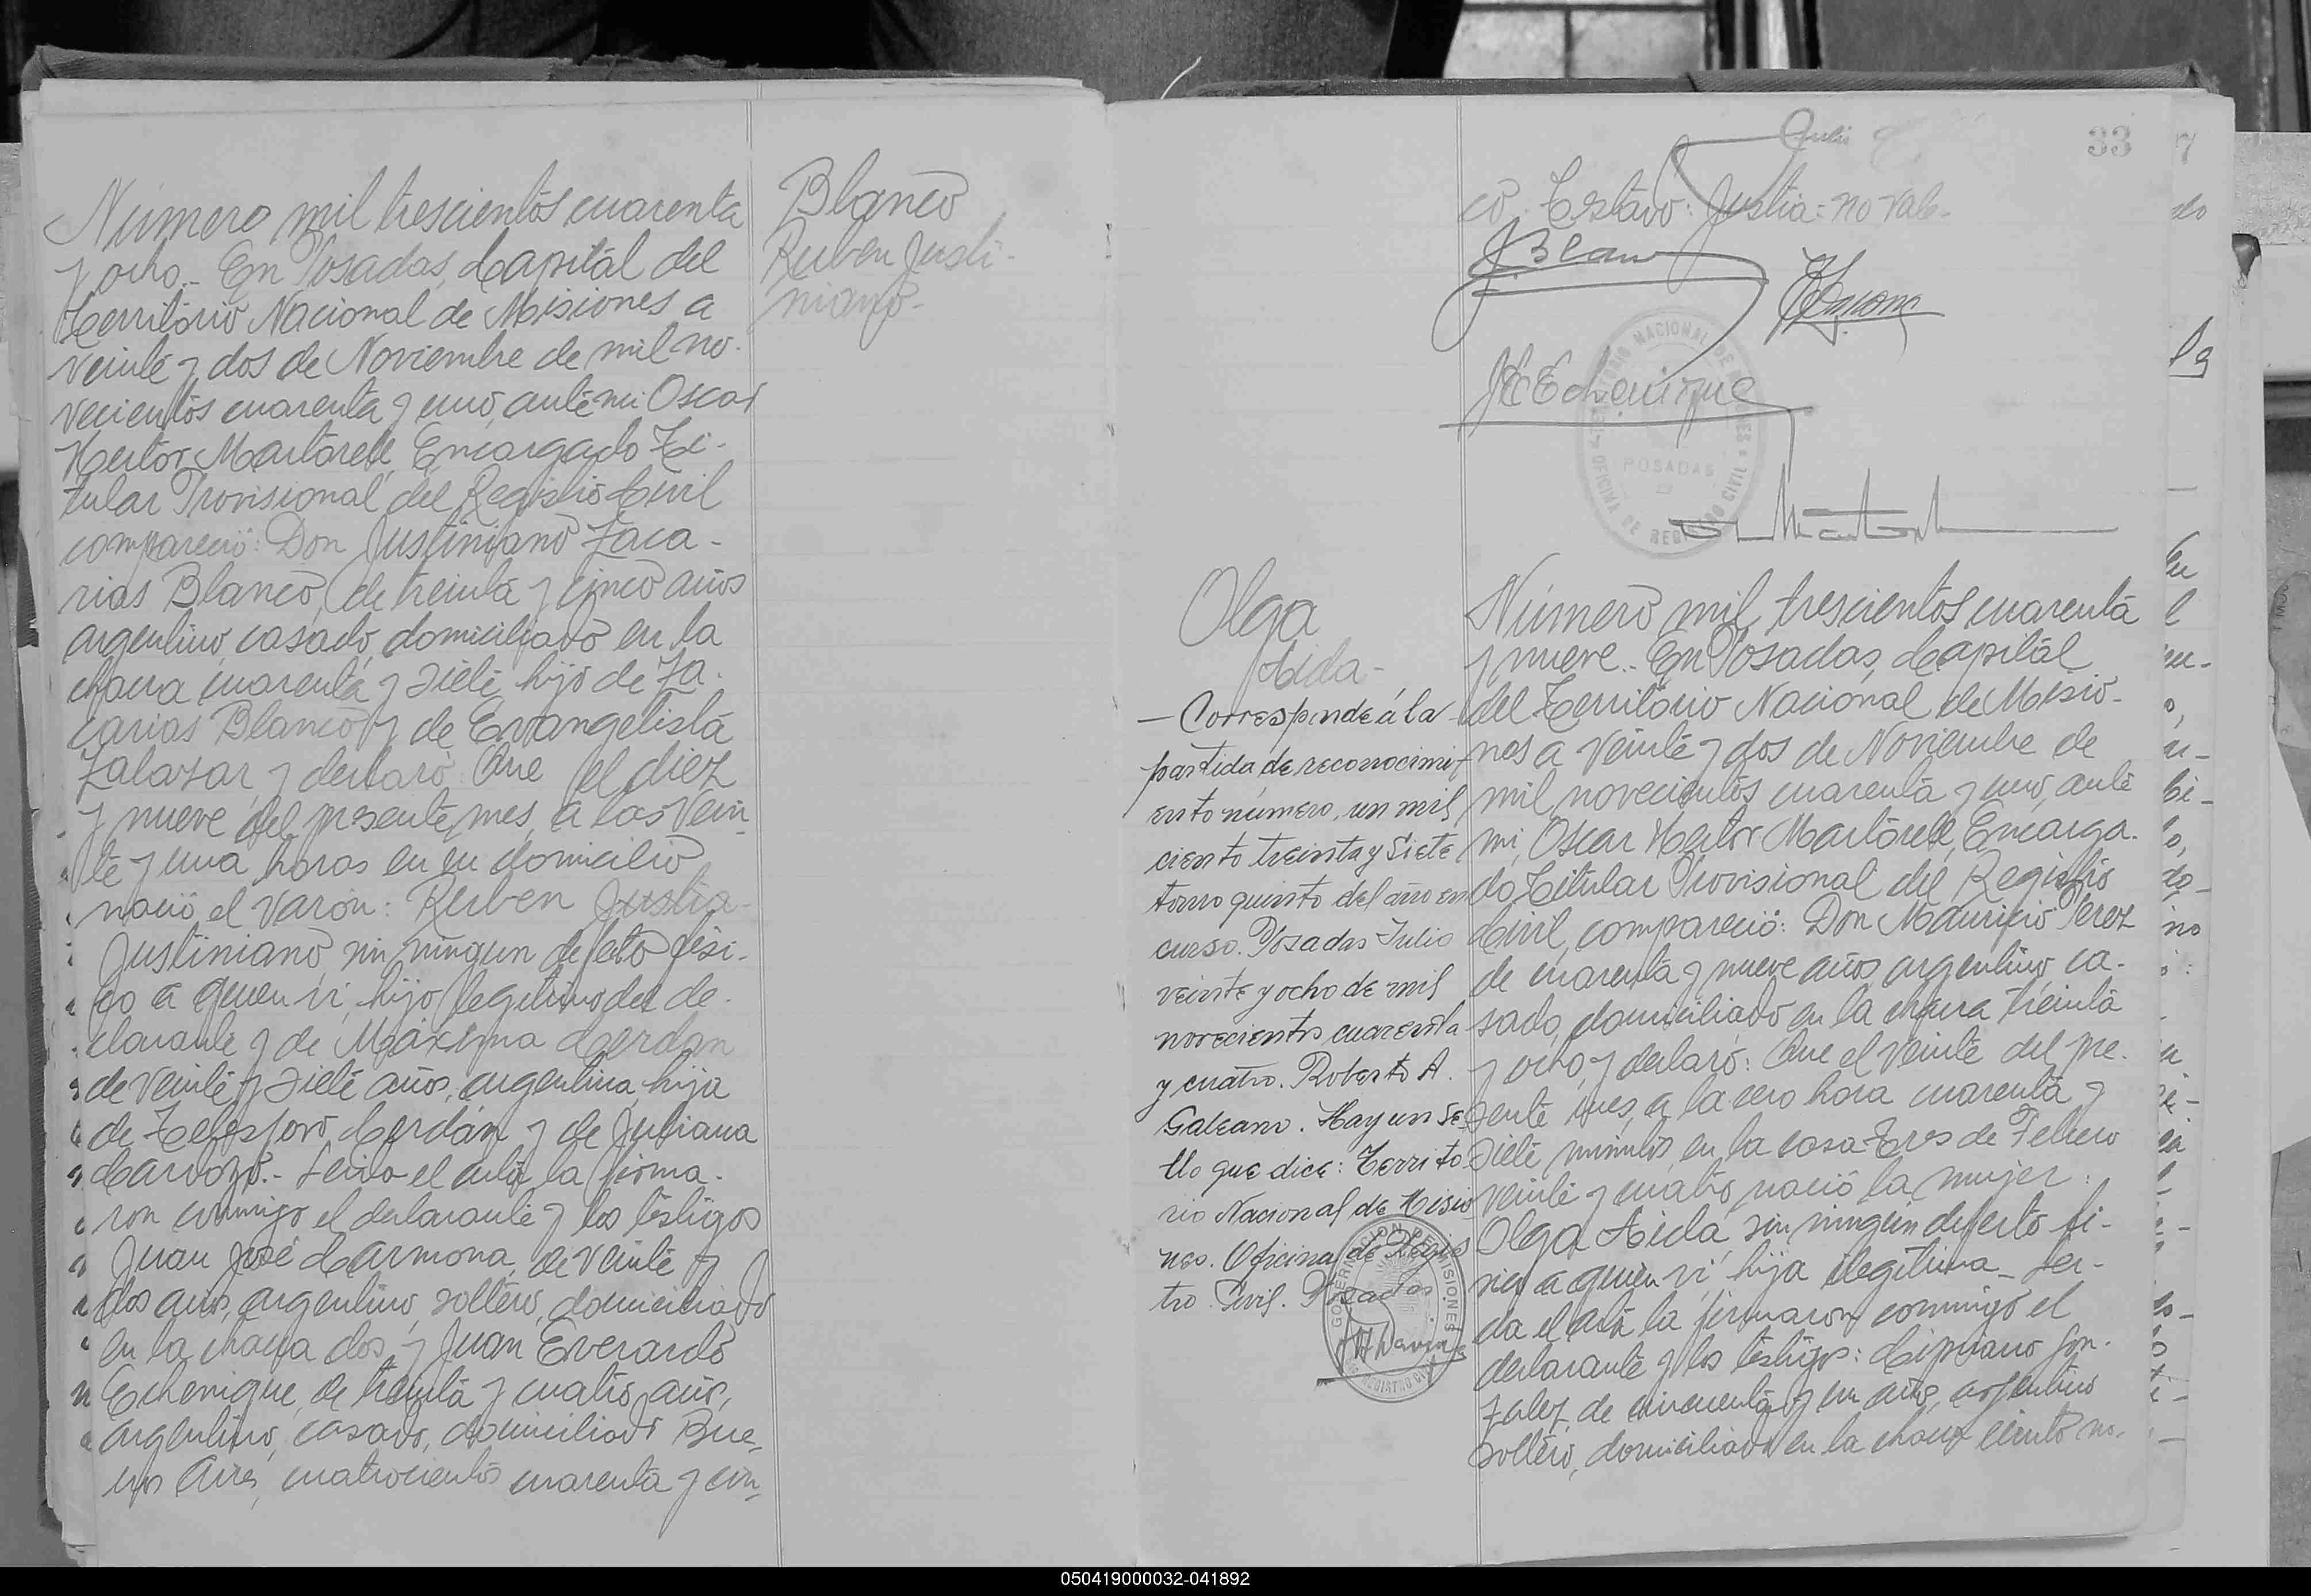 Número mil trescientos cuarenta
y ocho.- En Posadas, Capital del
Territorio Nacional de Misiones a
veinte y dos de Noviembre de mil no-
vecientos cuarenta y uno, ante mi Oscar
Hector Martorell, Encargado Ti-
tular Provisional del Registro Civil
compareció: Don Justiniano Zaca-
rias Blanco, de treinta y cinco años
argentino, casado, domiciliado en la
chacra cuarenta y siete, hijo de Za-
carias Blanco y de Evangelista
Zalazar, y declaró: Que el diez
y nueve del presente mes, a las vein-
te y una horas en su domicilio
nació el varón: Ruben Justia-
Justiniano, sin ningun defecto físi-
co a quien vi, hijo legitimo del de-
clarante y de Máxima Cerdan
de veinte y siete años, argentina, hija
de Telesforo Cerdán y de Juliana
Cardozo.- Leida el acta la firma-
ron conmigo el declarante y los testigos
Juan José Carmona, de veinte y
dos años, argentino, soltero, domiciliado
en la chacra dos y Juan Everardo
Echenique, de treinta y cuatro años,
argentino, casado, domiciliado Bue-
nos Aires, cuatrocientos cuarenta y cin-
Blanco
Ruben Justi-
niano-
33
co. Testado: Justia: no vale-
J. Blanco
JE Echenique
TERRITORIO NACIONAL DE MISIONES
POSADAS
OFICINA DE REGISTRO CIVIL
Olga
Aida-
— Corresponde á la
partida de reconocimi-
ento número, un mil
ciento treinta y siete
tomo quinto del año en
curso. Posadas Julio
veinte y ocho de mil
novecientos cuarenta
y cuatro. Roberto A.
Galeano. Hay un se-
llo que dice: Territo
rio Nacional de Misio
nes. Oficina de Regis
tro Civil. Posadas.
GOBERNACION DE MISIONES
REGISTRO CIVIL
Número mil trescientos cuarenta
y nueve.- En Posadas, Capital
del Territorio Nacional de Misio-
nes a veinte y dos de Noviembre de
mil novecientos cuarenta y uno, ante
mi, Oscar Hector Martorell, Encarga-
do Titular Provisional del Registro
Civil, compareció: Don Mauricio Perez
de cuarenta y nueve años, argentino, ca-
sado, domiciliado en la chacra treinta
y ocho, y declaró: Que el veinte del pre-
sente mes, a la cero hora cuarenta y
siete minutos, en la casa Tres de Febrero
veinte y cuatro, nació la mujer:
Olga Aida, sin ningún defecto fí-
sico a quien vi, hija ilegitima- Lei-
da el acta la firmaron conmigo el
declarante y los testigos: Cipriano Gon-
zalez, de cincuenta y un años, argentino
soltero, domiciliado en la chacra ciento no-
050419000032-041892